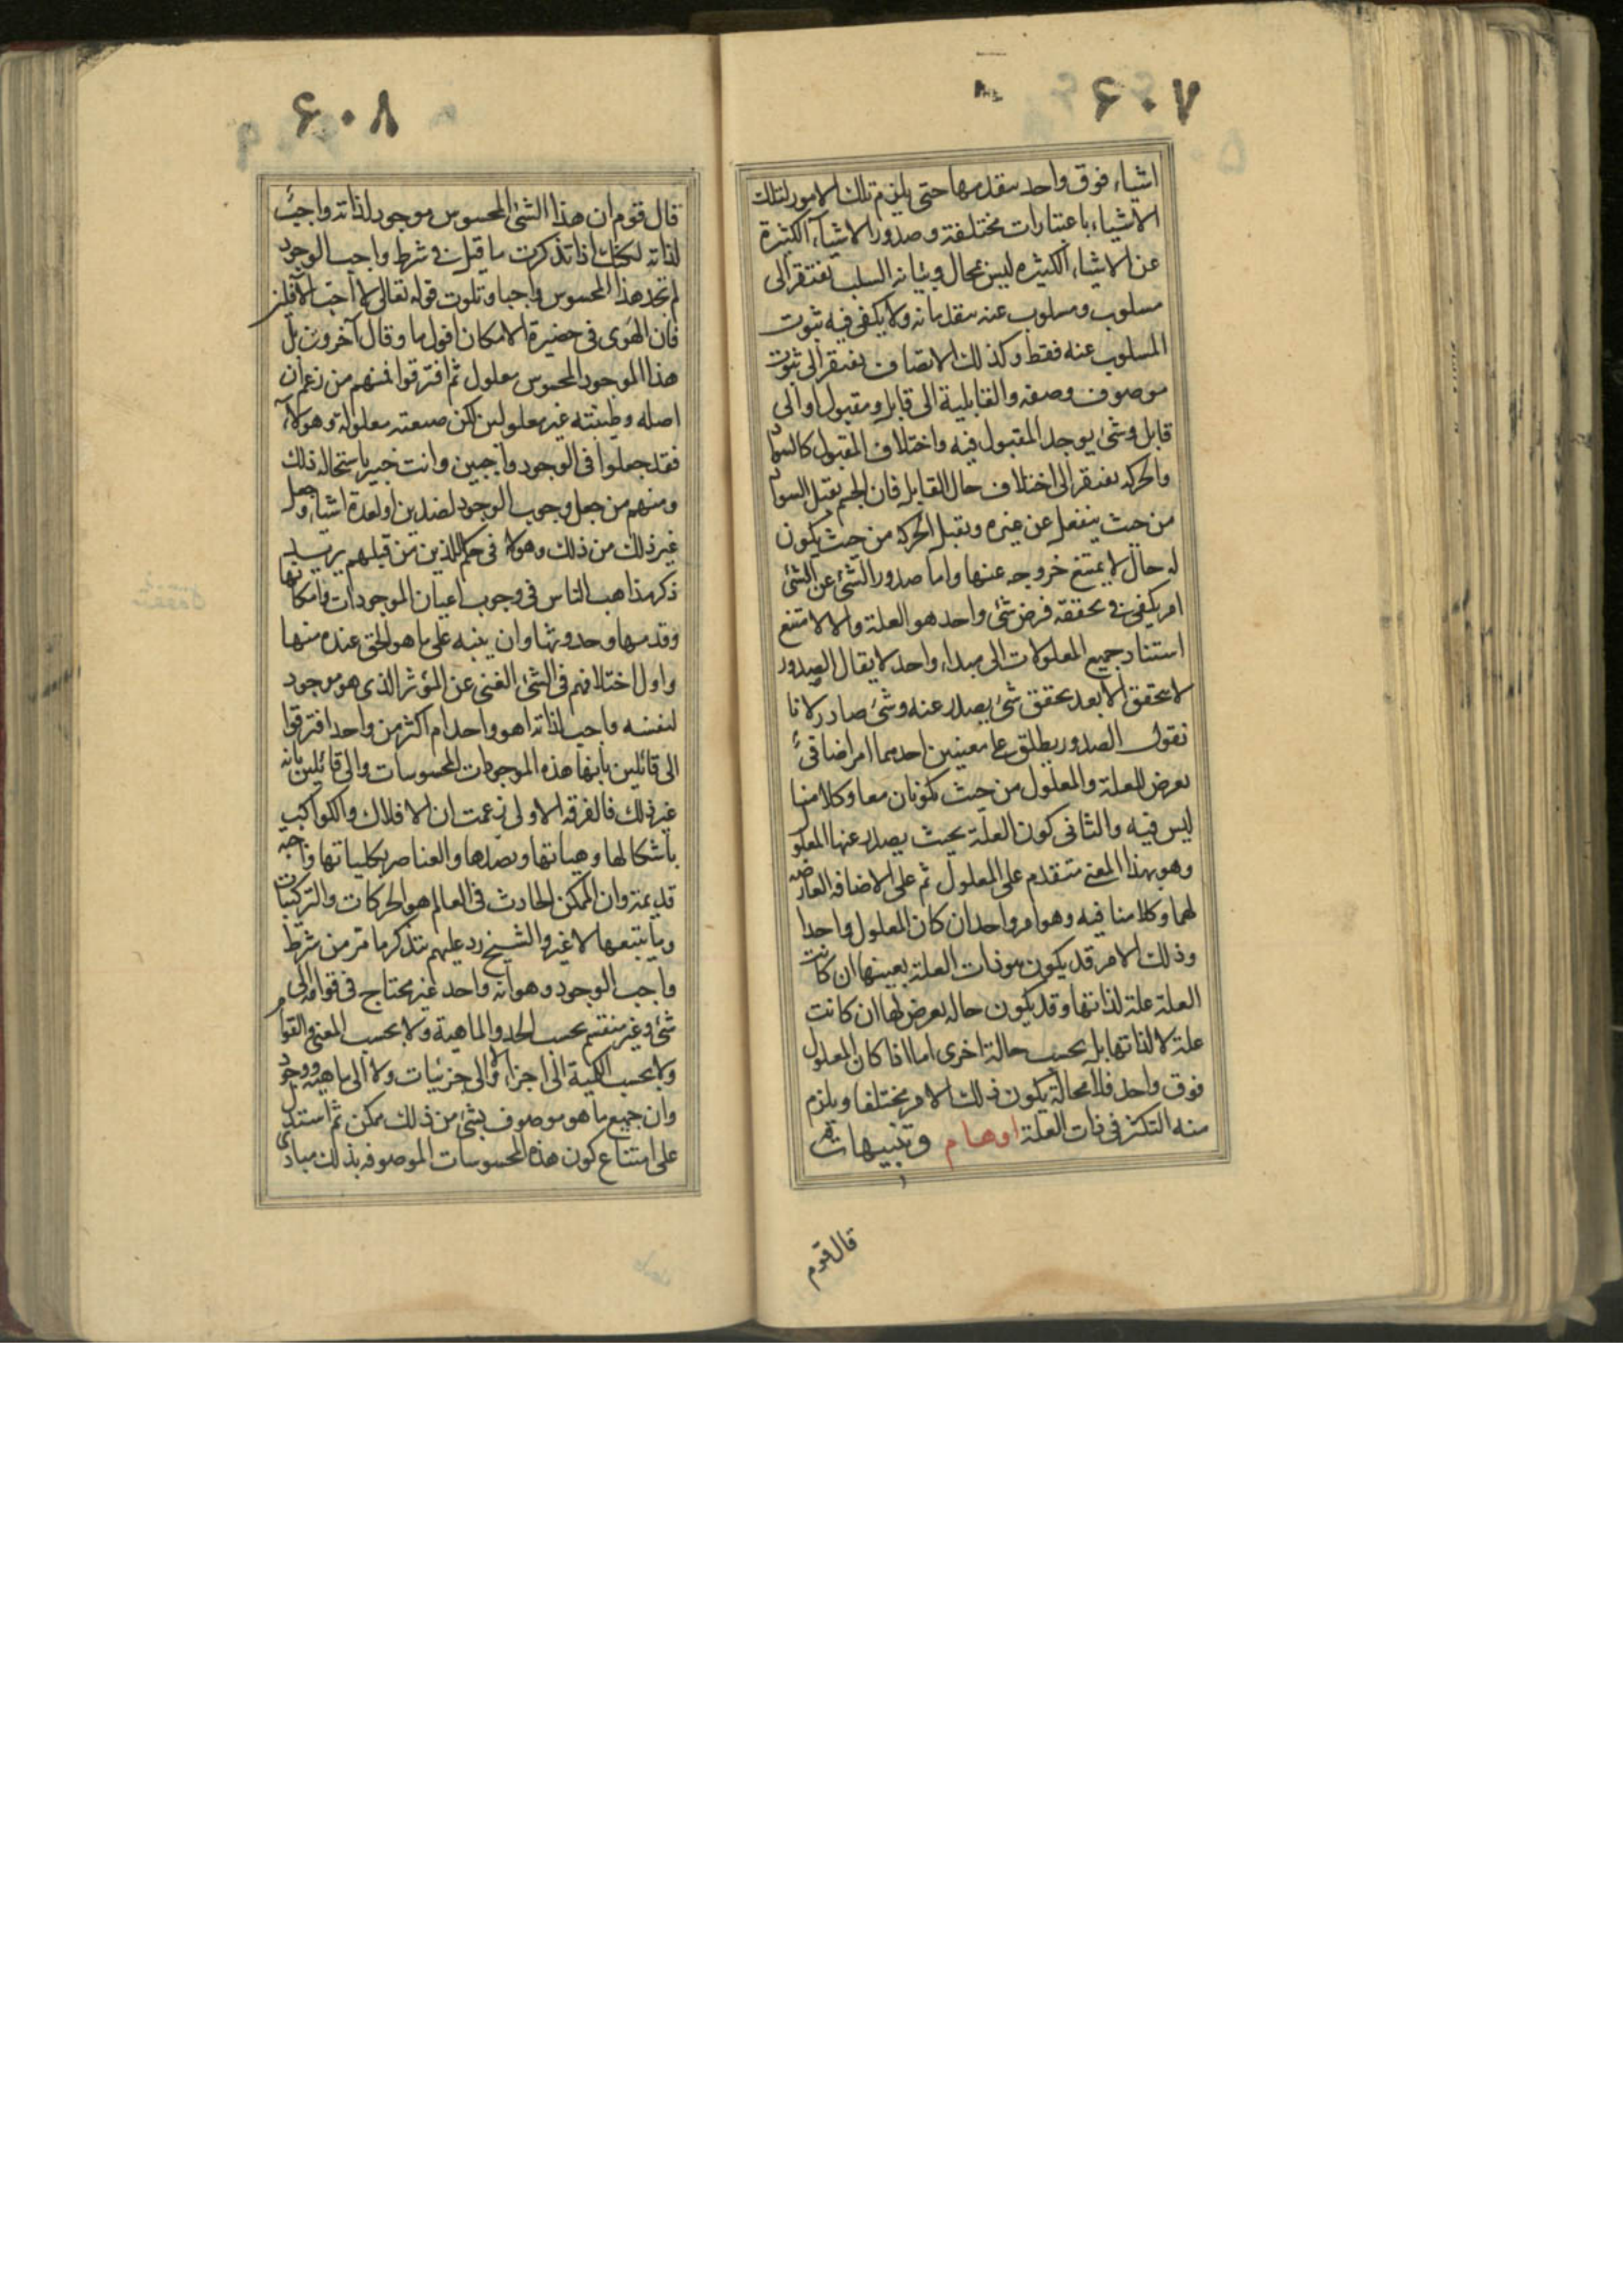 ۶۰۷
اشياء فوق واحد يتقدمها حتى يلزم تلك الامور لتلك
الاشياء باعتبارات مختلفة و صدور الاشياء الكثيرة
عن الاشياء الكثيره ليس بمحال وبيانه السلب يفتقر الى
مسلوب ومسلوب عنه يتقدمانه ولا يكفي فيه ثبوت
المسلوب عنه فقط وكذلك الاتصاف يفتقر الى ثبوت
موصوف وصفه والقابلية الى قابل ومقبول او الى
قابل وشئ يوجد المقبول فيه واختلاف المقبول كالسواد
والحركه يفتقر الى اختلاف حال القابل فان الجسم يقبل السواد
من حيث ينفعل عن غيره ويقبل الحركه من حيث يكون
له حال لا يمتنع خروجه عنها واما صدور الشئ عن الشئ
امر يكفى فى تحققه فرض شئ واحد هو العلة والا لامتنع
استناد جميع المعلولات الى مبداء واحد لا يقال الصدور
لا يتحقق الا بعد تحقق شئ يصدر عنه وشئ صادر لانا
نقول الصدور يطلق على معنيين احدهما امر اضافئ
يعرض للعلة والمعلول من حيث يكونان معا وكلامنا
ليس فيه والثانى كون العلة بحيث يصدر عنها المعلول
وهو بهذا المعنى متقدم على المعلول ثم على الاضافه العارضه
لهما وكلامنا فيه وهو امر واحد ان كان المعلول واحدا
وذلك الامر قد يكون هو ذات العلة بعينها ان كانت
العلة علة لذاتها وقد يكون حاله يعرض لها ان كانت
علة لا لذاتها بل بحسب حالة اخرى اما اذا كان المعلول
فوق واحد فلا محالة يكون ذلك الامر مختلفا ويلزم
منه التكثر فى ذات العلة اوهام وتنبيهات
قال قوم
۶۰۸
قال قوم ان هذا الشئ المحسوس موجود لذاته واجب
لذاته لكنك اذا تذكرت ما قيل فى شرط واجب الوجود
لم تجد هذا المحسوس واجبا وتلوت قوله تعالى لا احب الآفلين
فان الهوى فى حضيرة الامكان افول ما وقال آخرون بل
هذا الموجود المحسوس معلول ثم افترقوا فمنهم من زعم ان
اصله وطينته غير معلولين لكن صنعته معلولة وهولاء
فقد جعلوا فى الوجود واجبين وانت خبير باستحاله ذلك
ومنهم من جعل وجوب الوجود لضدين او لعدة اشياء وجعل
غير ذلك من ذلك وهولاء فى حكم الذين من قبلهم يريد
ذكر مذاهب الناس فى وجوب اعيان الموجودات وامكانها
وقدمها وحدوثها وان ينبه على ما هو الحق عنده منها
واول اختلافهم فى الشئ الغنى عن المؤثر الذى هو موجود
لنفسه واجب لذاته اهو واحد ام اكثر من واحد افترقوا
الى قائلين بانها هذه الموجودات المحسوسات والى قائلين بانه
غير ذلك فالفرقه الاولى زعمت ان الافلاك والكواكب
باشكالها وهياتها ونضدها والعناصر بكلياتها واجبه
قديمة وان الممكن الحادث فى العالم هو الحركات والتركيبات
وما يتبعها لا غير والشيخ رد عليهم بتذكر ما مر من شرط
واجب الوجود وهو انه واحد غير محتاج فى قوامه الى
شئ وغير منقسم بحسب الحد والماهية ولا بحسب المعنى والقوام
ولا بحسب الكمية الى اجزاء والا الى جزئيات ولا الى ماهيه ووجود
وان جميع ما هو موصوف بشئ من ذلك ممكن ثم استدل
على امتناع كون هذه المحسوسات الموصوفه بذلك مبادى